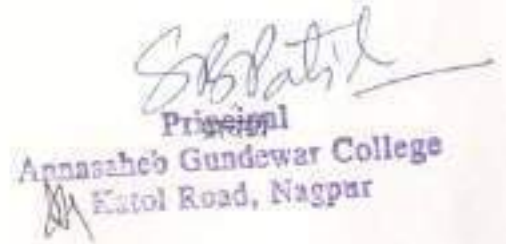 SBPatil
Principal
Annasaheb Gundewar College
Katol Road, Nagpur